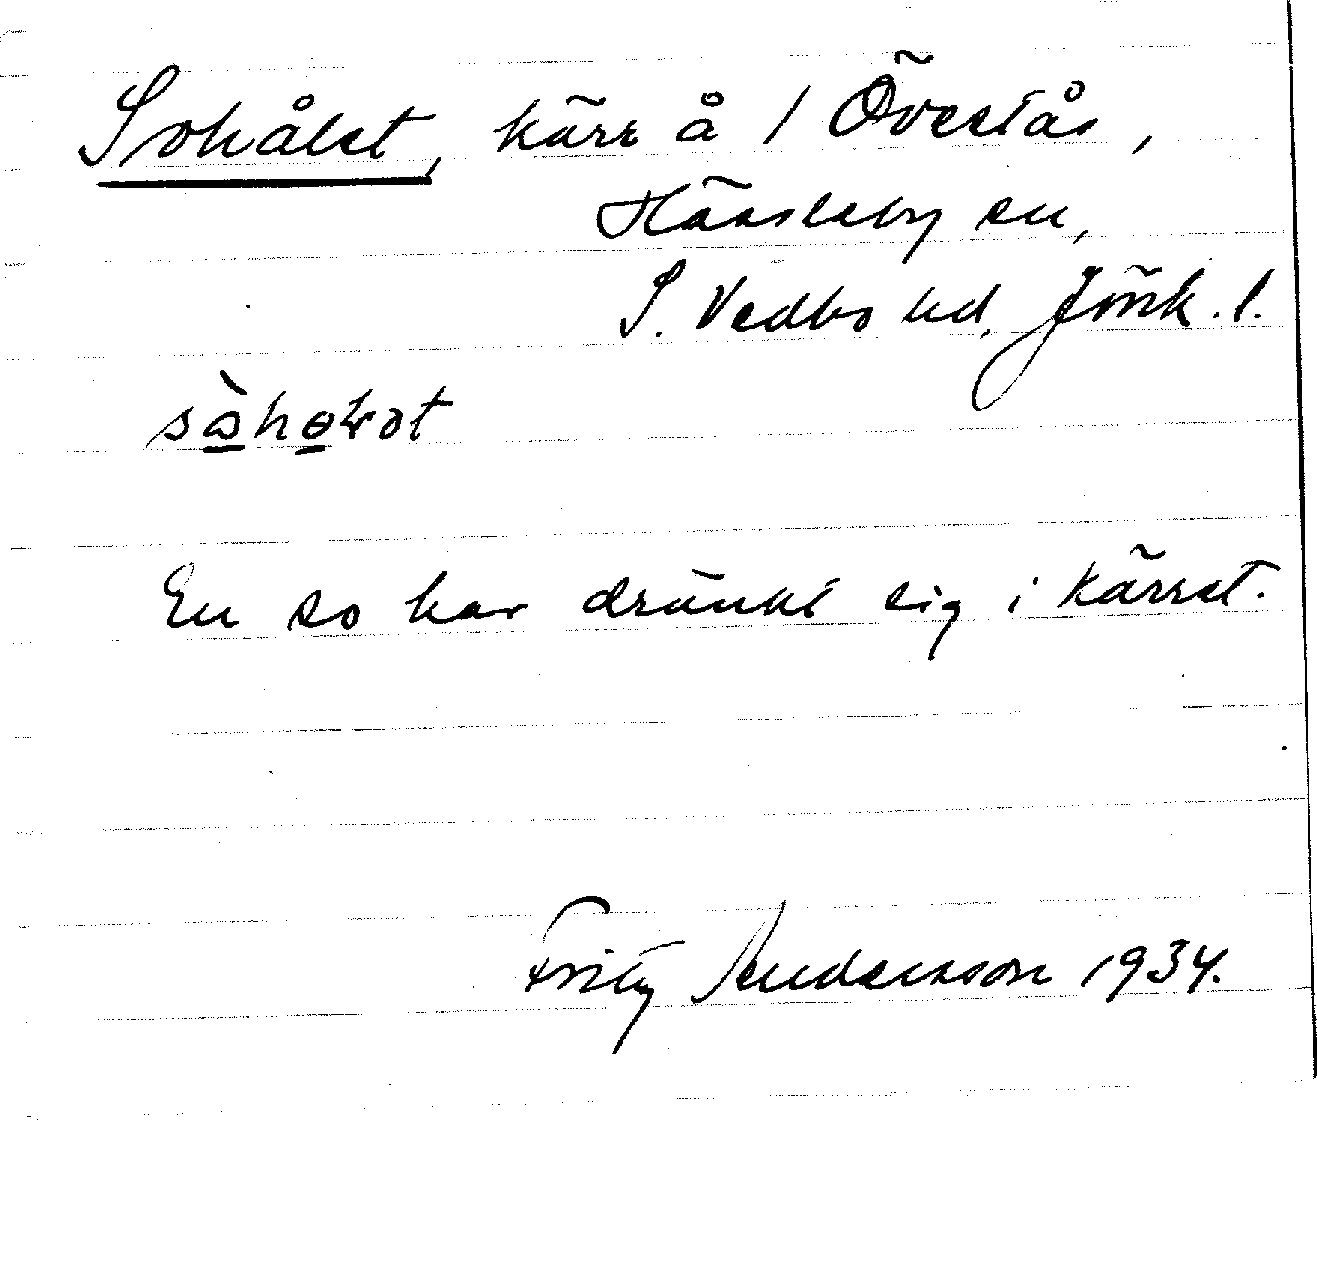 Sohålet, kärr å 1 Överlås,
Hässleby sn,
S. Vedbo hd. Jönk. l.
En so har dränkt sig i kärret.
Fritz Andersson 1934.